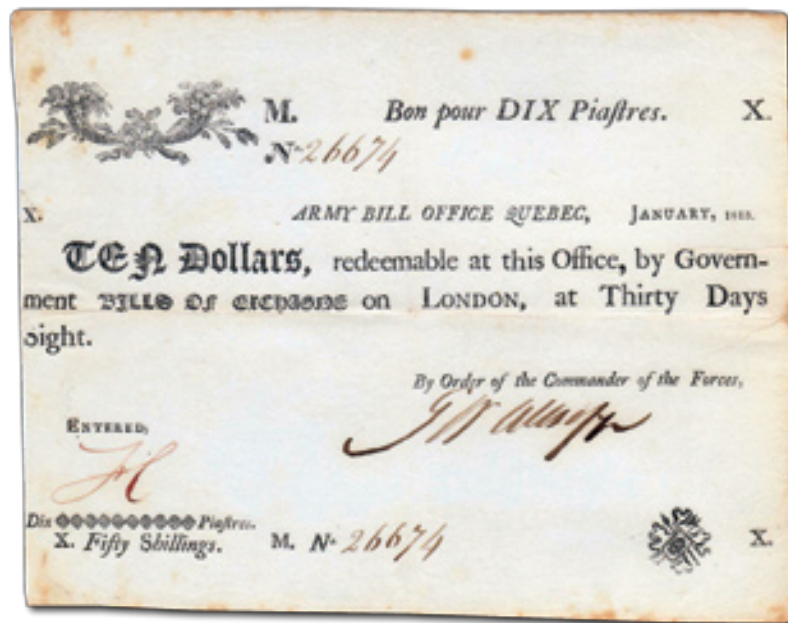 M. Bon pour DIX Piaſtres. X.
No. 26674
X. ARMY BILL OFFICE QUEBEC, JANUARY,
TEN Dollars, redeemable at this Office, by Govern-
ment BILLS OF EXCHANGE on LONDON, at Thirty Days
Sight.
By Order of the Commander of the Forces,
ENTERED,
Dix Piaſtres.
X. Fifty Shillings. M. No. 26674 X.